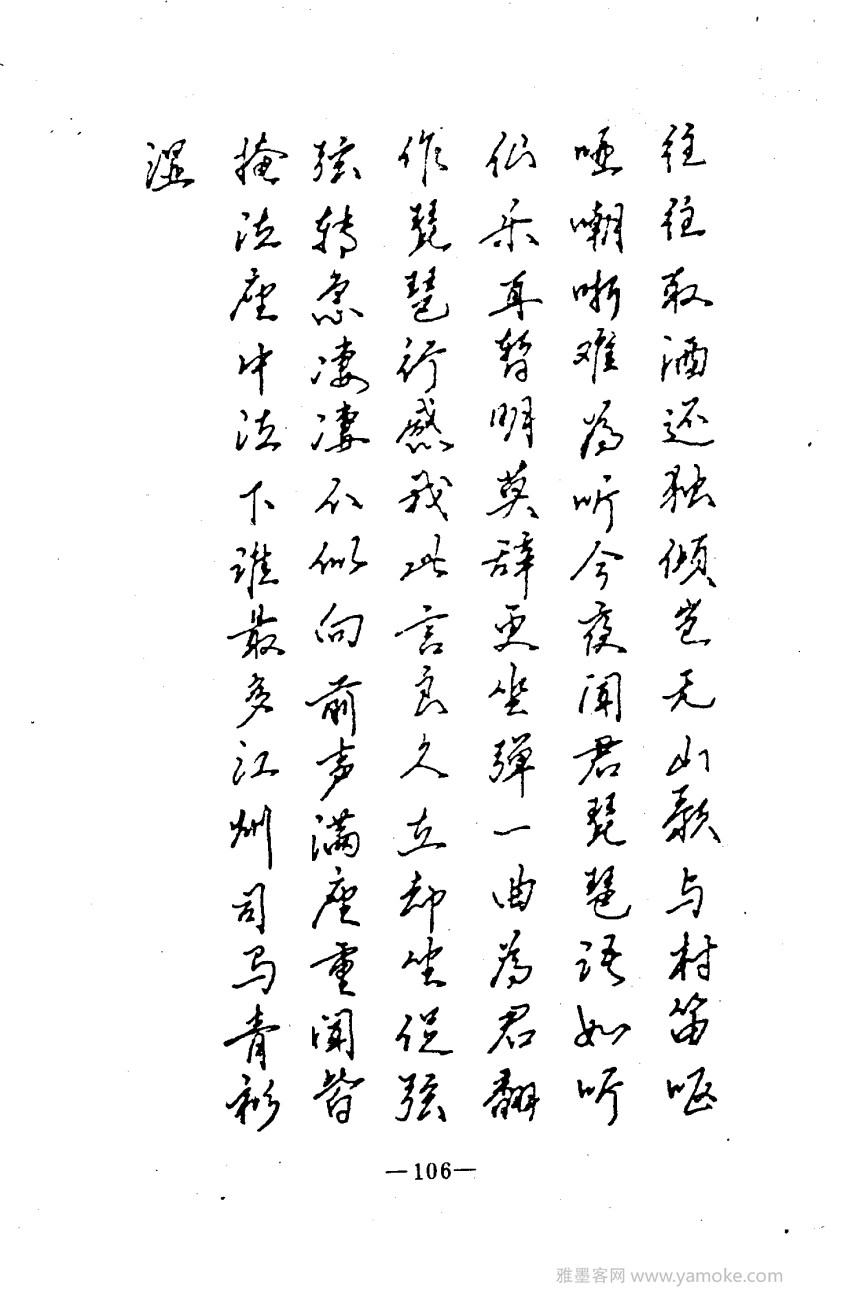 往往取酒还独倾岂无山歌与村笛呕
哑嘲哳难为听今夜闻君琵琶语如听
仙乐耳暂明莫辞更坐弹一曲为君翻
作琵琶行感我此言良久立却坐促弦
弦转急凄凄不似向前声满座重闻皆
掩泣座中泣下谁最多江州司马青衫
湿
—106—
雅墨客网 www.yamoke.com